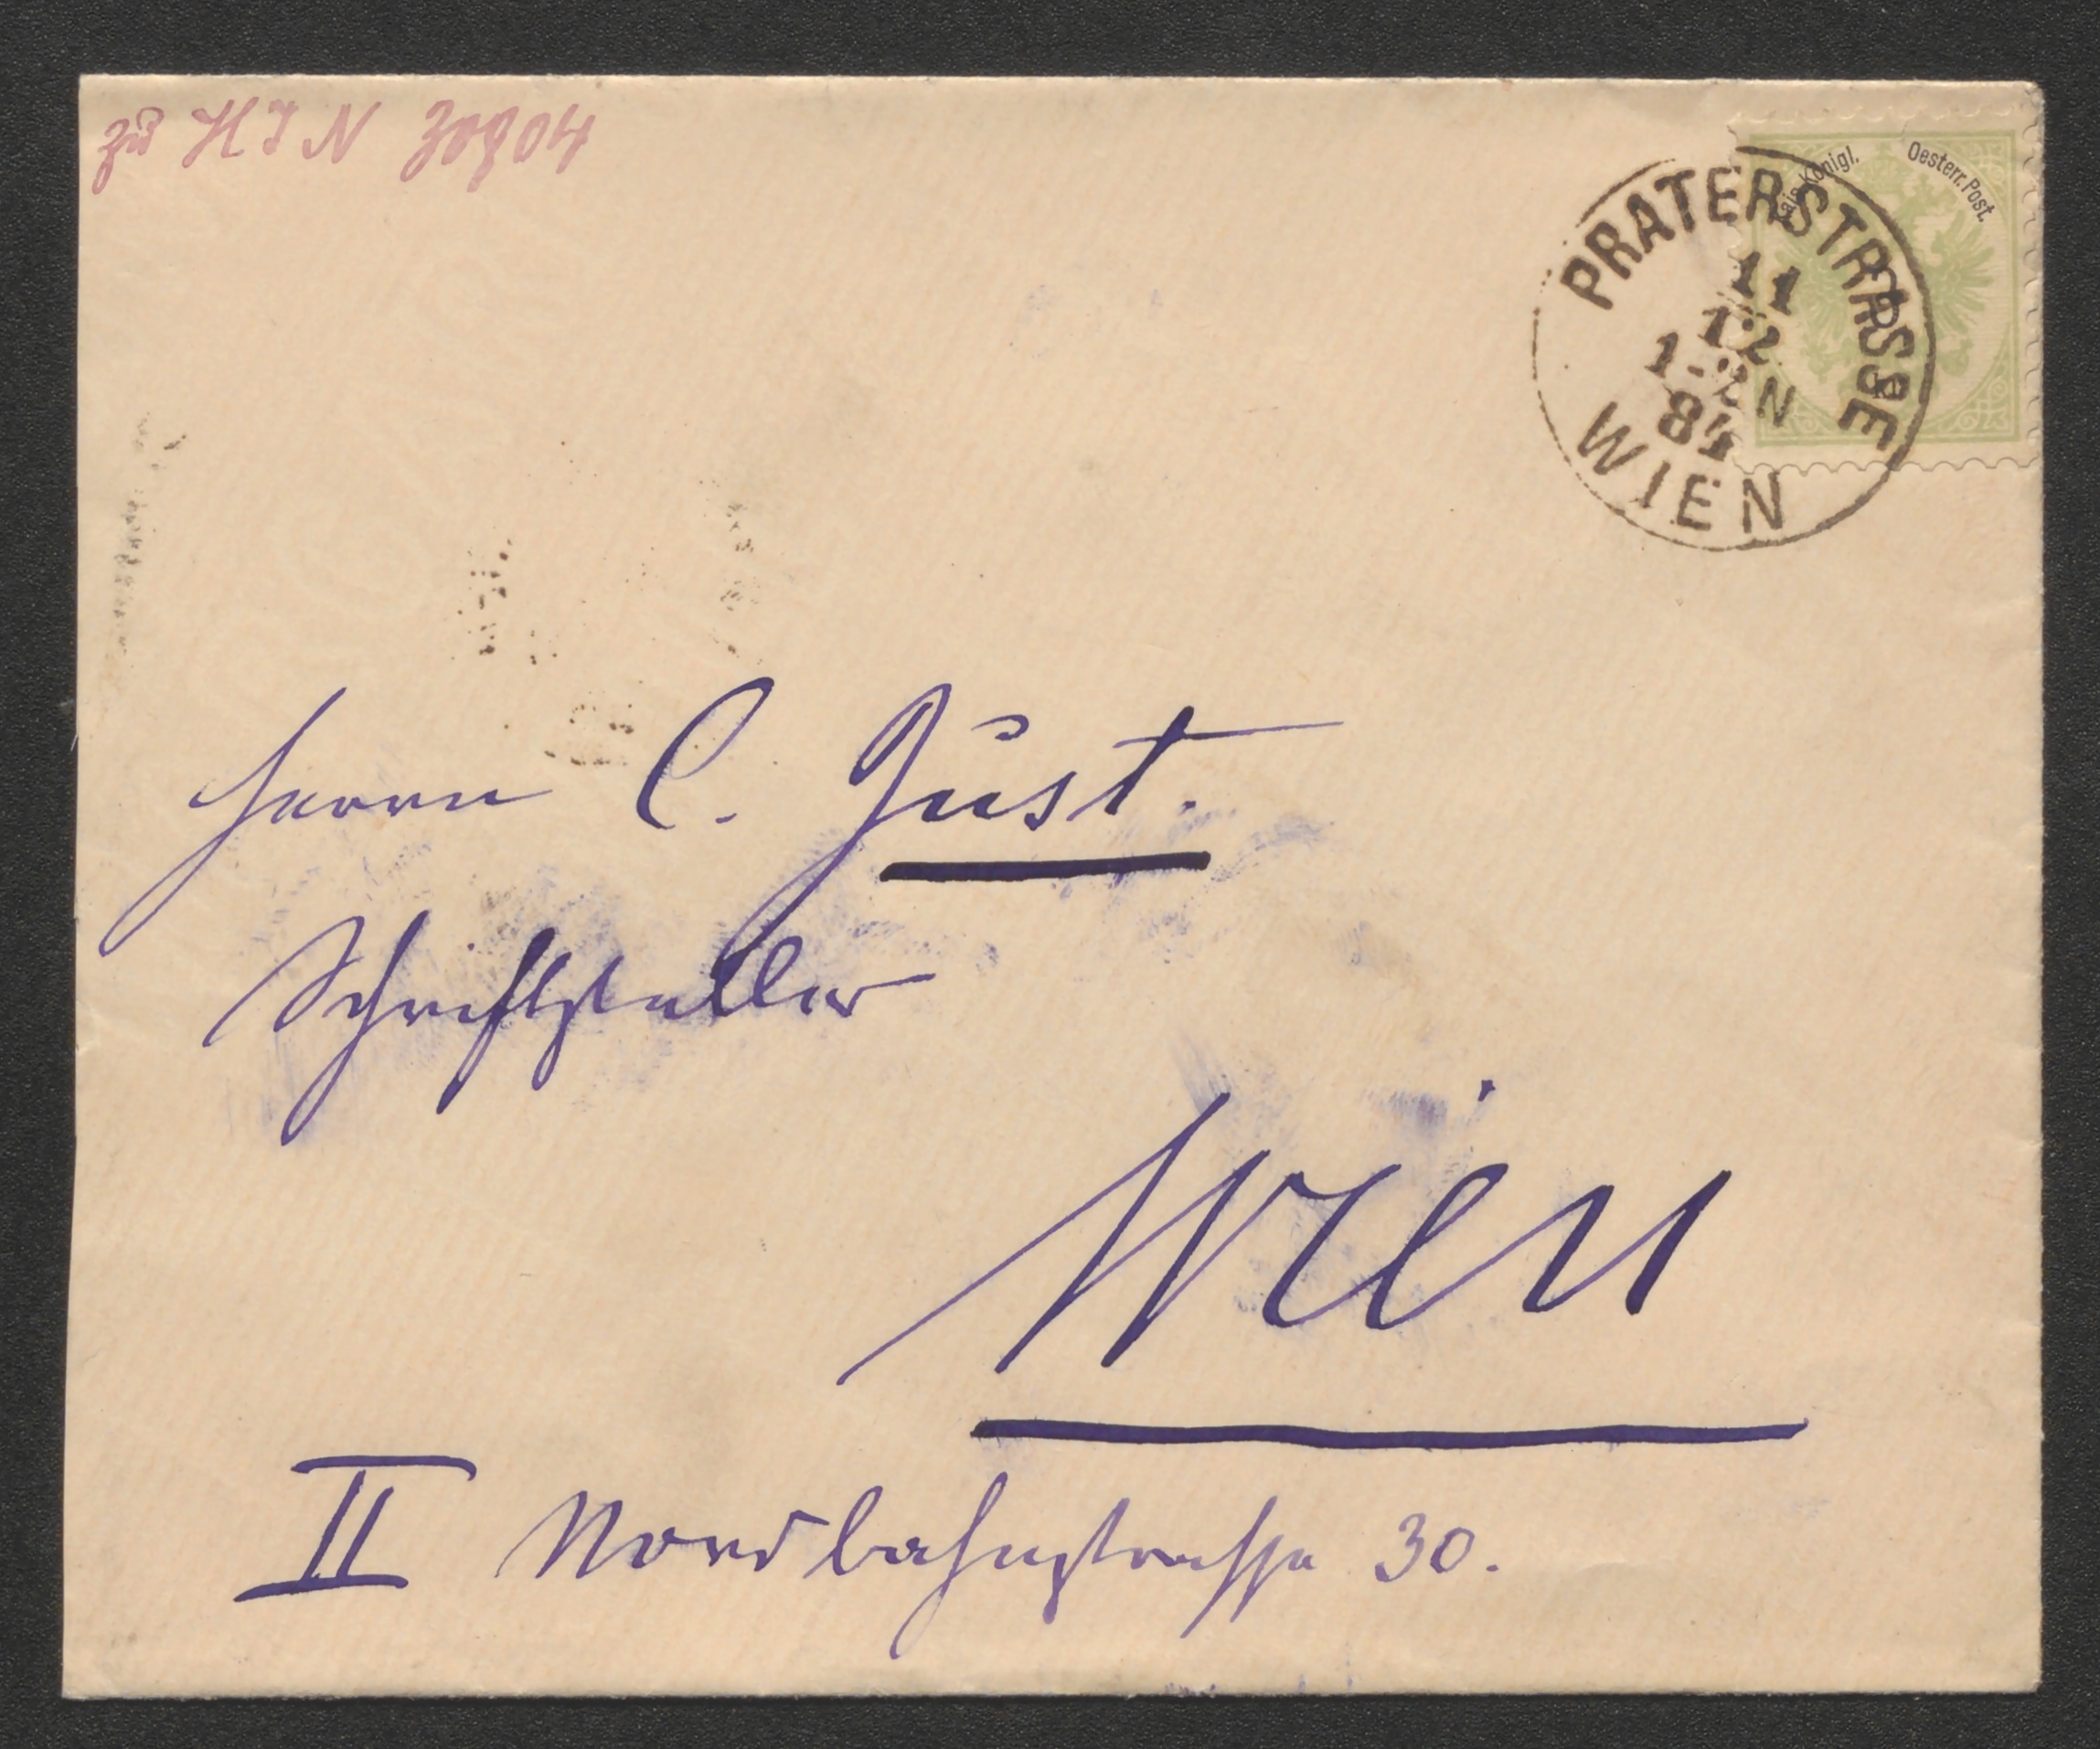 zu H I N
Kais. Königl. Oesterr. Post.
PRATERSTRASSE
11
12
1-2 N
84
WIEN
Herrn C. Just.
Schriftsteller
Wien
II Nordbahnstrasse 30.